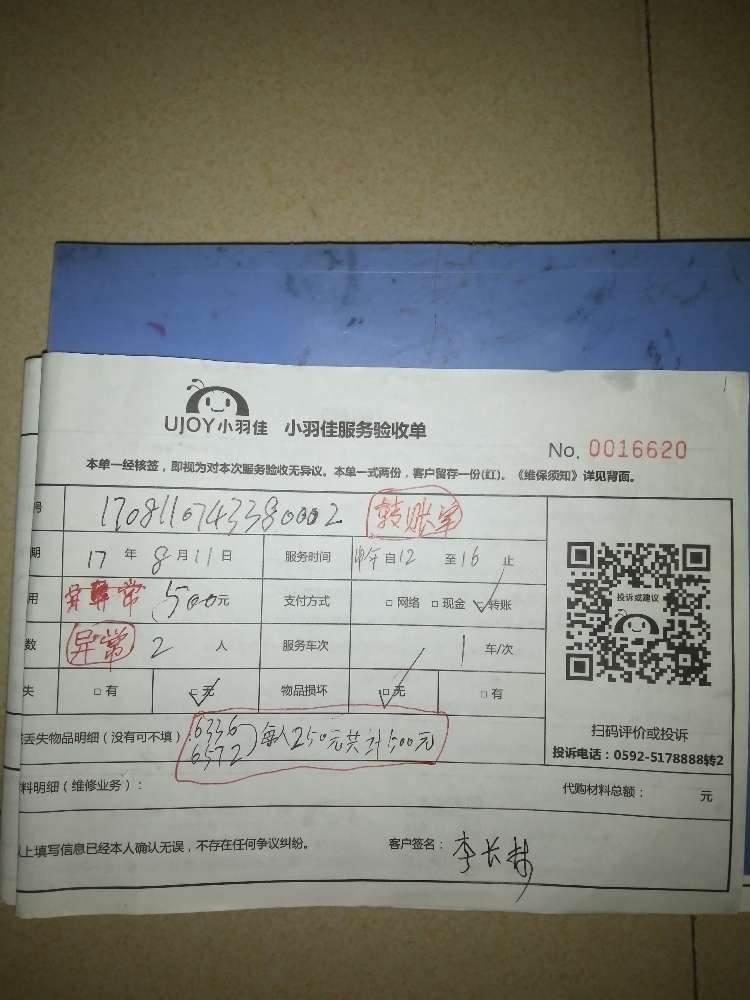 UJOY小羽佳 小羽佳服务验收单
No. 0016620
本单一经核签，即视为对本次服务验收无异议。本单一式两份，客户留存一份(红)。《维保须知》详见背面。
号 1708110743380002
期 17 年 8 月 11 日 服务时间 自12 至16 止
用 异常 500元 支付方式 □ 网络 □ 现金 □ 转账
数 异常 2 人 服务车次 1 车/次
失 □ 有 □ 无 物品损坏 □ 无 □ 有
丢失物品明细（没有可不填）： 6336
6572 每人250元共计500元
料明细（维修业务）： 代购材料总额： 元
上填写信息已经本人确认无误，不存在任何争议纠纷。 客户签名： 李长林
投诉或建议
扫码评价或投诉
投诉电话：0592-5178888转2